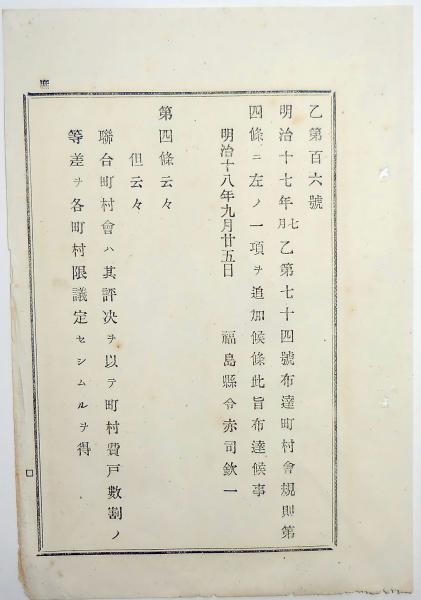 乙第百六號
明治十七年七月乙第七十四號布達町村會規則第
四條ニ左ノ一項ヲ追加候條此旨布達候事
明治十八年九月廿五日　福島縣令赤司欽一
第四條云々
但云々
聯合町村會ハ其評決ヲ以テ町村費戸數割ノ
等差ヲ各町村限議定セシムルヲ得